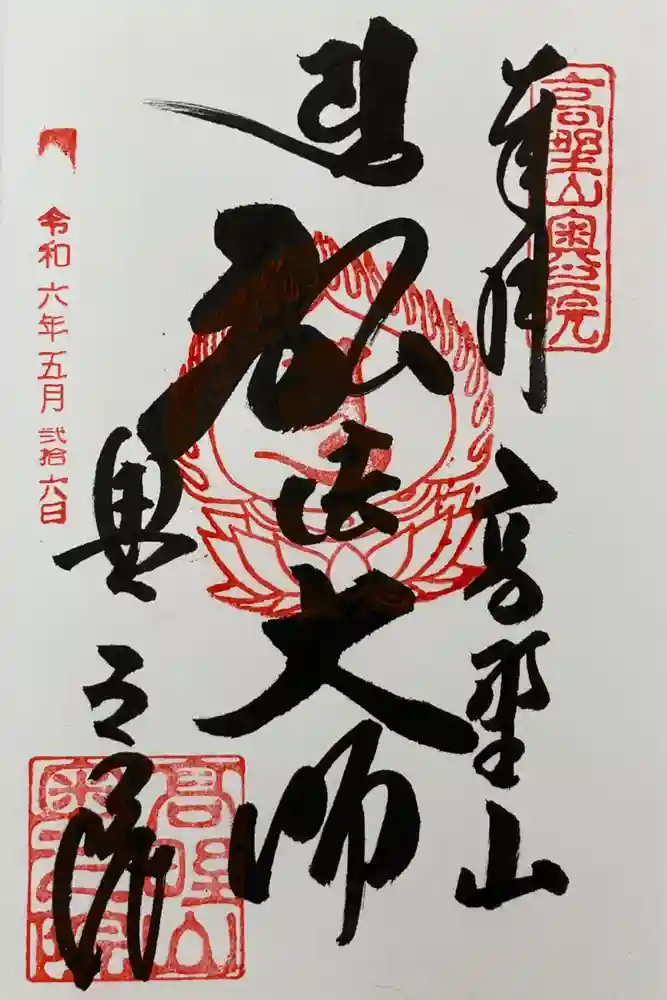 高野山奥之院
奉拝
高野山
弘法大師
奥之院
高野山
奥之院
令和六年五月弐拾六日